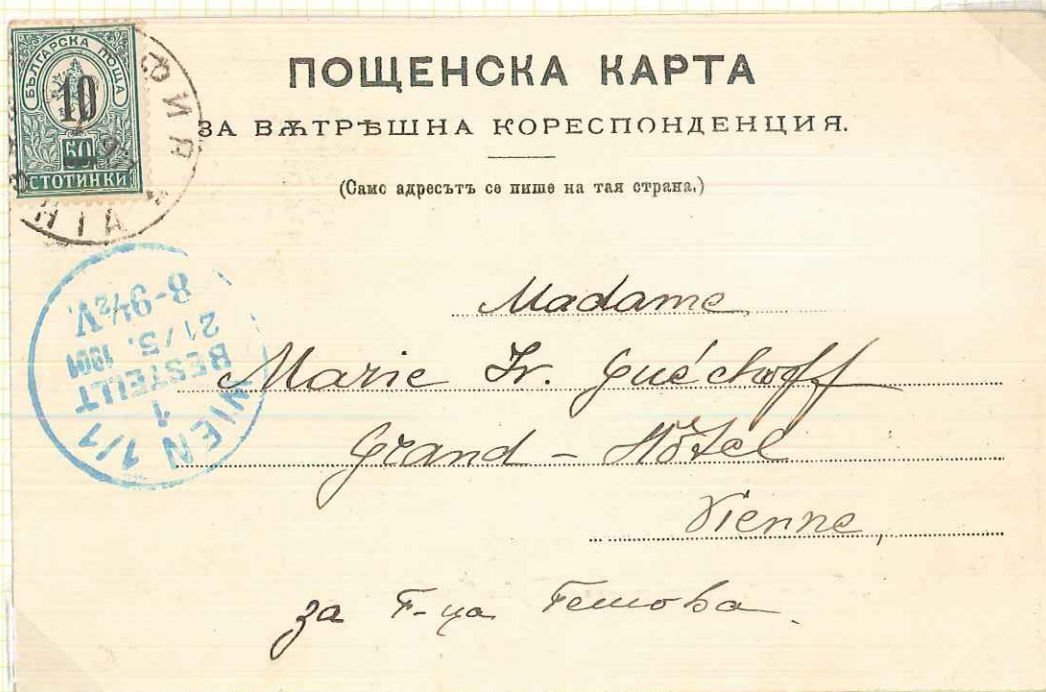 БЪЛГАРСКА ПОЩА
10
50
СТОТИНКИ
ПОЩЕНСКА КАРТА
ЗА ВѪТРѢШНА КОРЕСПОНДЕНЦИЯ.
(Само адресътъ се пише на тая страна.)
WIEN 1/1
1
BESTELLT
21/5. 1901
8-9½V.
Madame
Marie Iv. Guéchoff
Grand - Hôtel
Vienne,
за Г-ца Гешова.